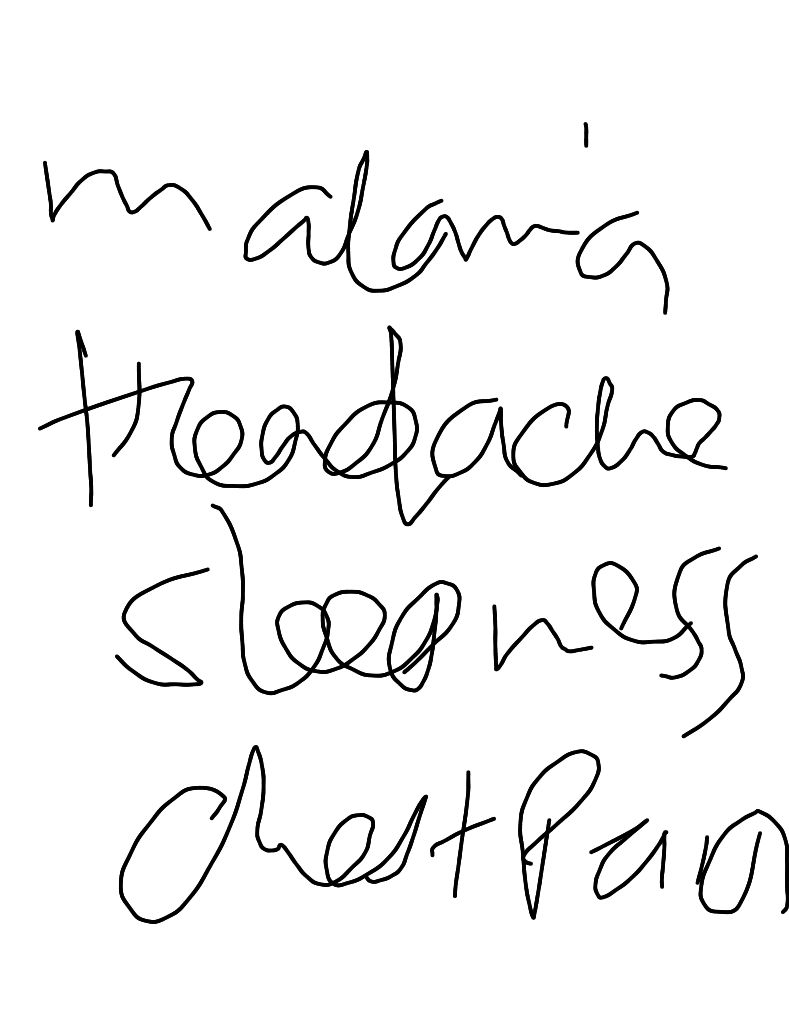 malaria
Headache
sleepness
chest Pan